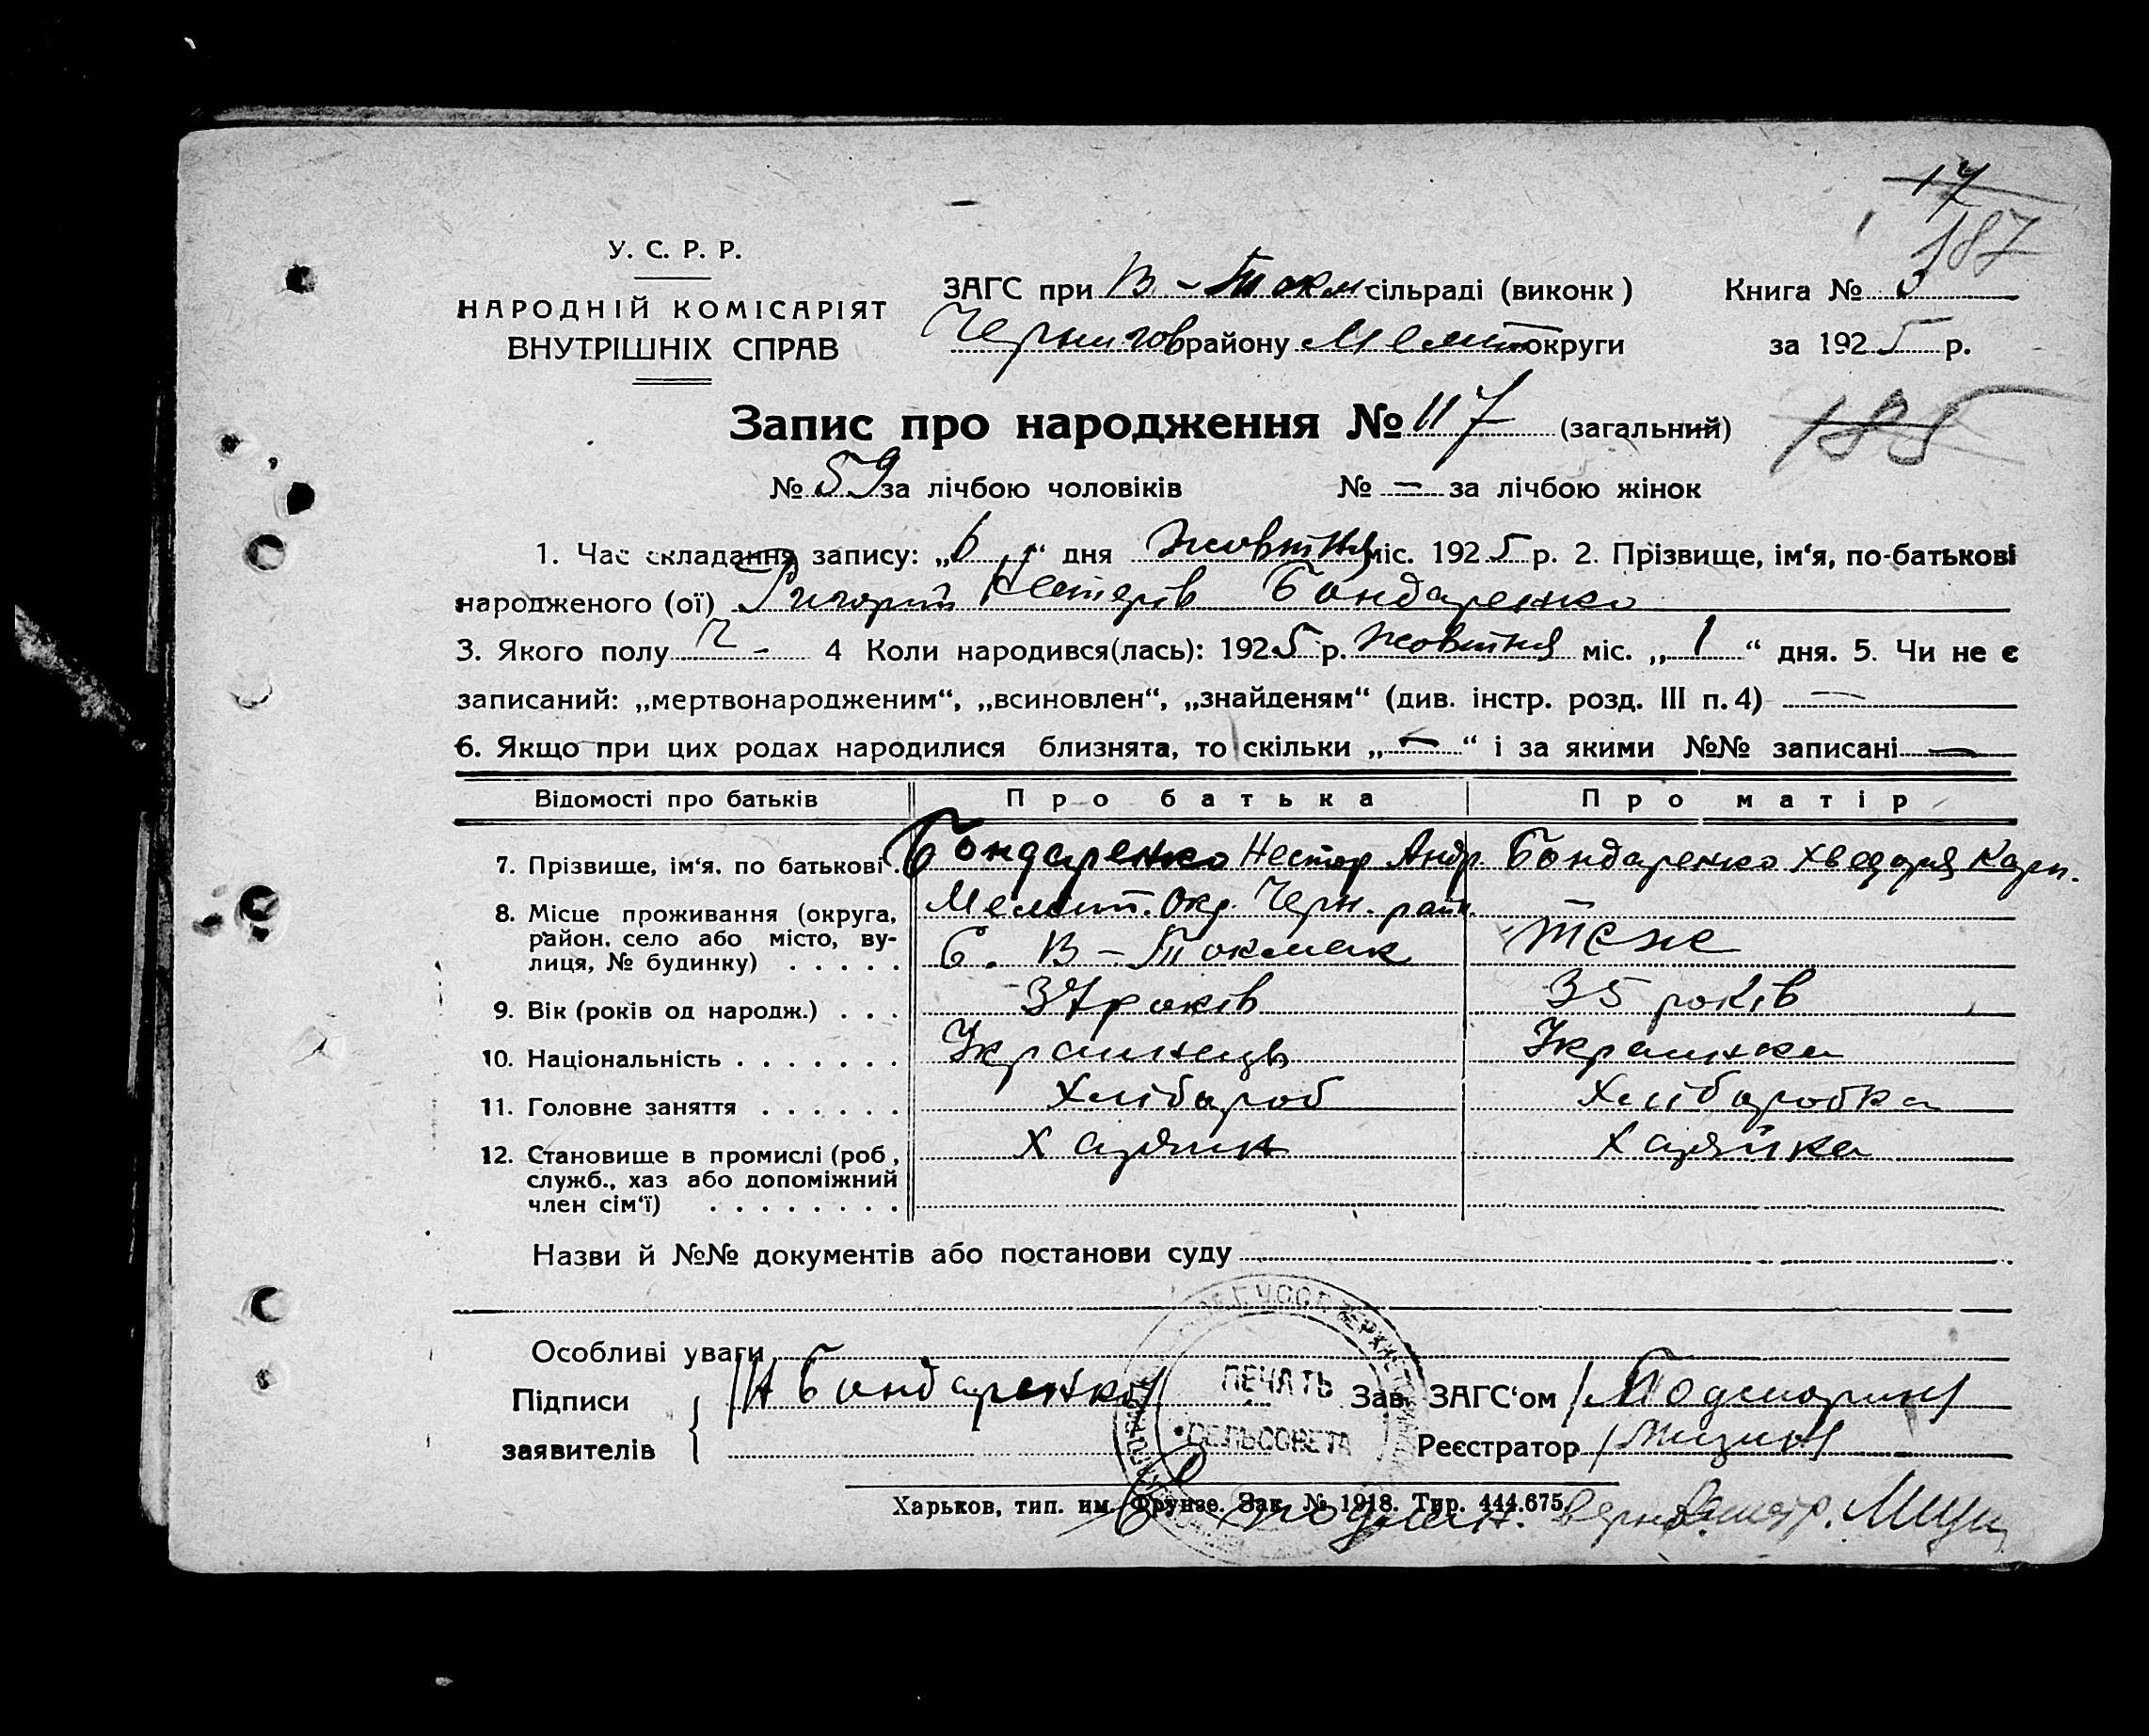 17
187
У. С. Р. Р.
НАРОДНІЙ КОМІСАРІЯТ
ВНУТРІШНІХ СПРАВ
ЗАГС при В-Токм сільраді (виконк)
Книга № 3
Чернигов району Мелит округи
за 1925 р.
Запис про народження № 117 (загальний)
185
№ 59 за лічбою чоловіків № — за лічбою жінок
1. Час складання запису: „6“ дня жовтня міс. 1925 р. 2. Прізвище, ім‘я, по-батькові
народженого (ої) Григорій Нестерів Бондаренко
3. Якого полу ч - 4 Коли народився(лась): 1925 р. жовтня міс. „1“ дня. 5. Чи не є
записаний: „мертвонародженим“, „всиновлен“, „знайденям“ (див. інстр. розд. III п. 4) —
6. Якщо при цих родах народилися близнята, то скільки „—“ і за якими №№ записані —
Відомості про батьків Про батька Про матір
7. Прізвище, ім‘я, по батькові . Бондаренко Нестор Андр. Бондаренко Хведоря Карп.
8. Місце проживання (округа, Мелит. Окр. Черн. райн.
район, село або місто, ву-
лиця, № будинку) . . . . . С. В-Токмак теже
9. Вік (років од народж.) . . . 37 років 35 років
10. Національність . . . . . . . Українець Українка
11. Головне заняття . . . . . . Хлібороб Хліборобка
12. Становище в промислі (роб, Хазяин Хазяйка
служб., хаз або допоміжний
член сім‘ї) . . . . . . . .
Назви й №№ документів або постанови суду
Особливі уваги
Підписи
заявителів
/Н Бондаренко/
ПЕЧАТЬ
СЕЛЬСОВЕТА
Зав. ЗАГС‘ом
Реєстратор
Харьков, тип. им. Фрунзе. Зак. № 1918. Тир. 444.675.
С подлин. верно.